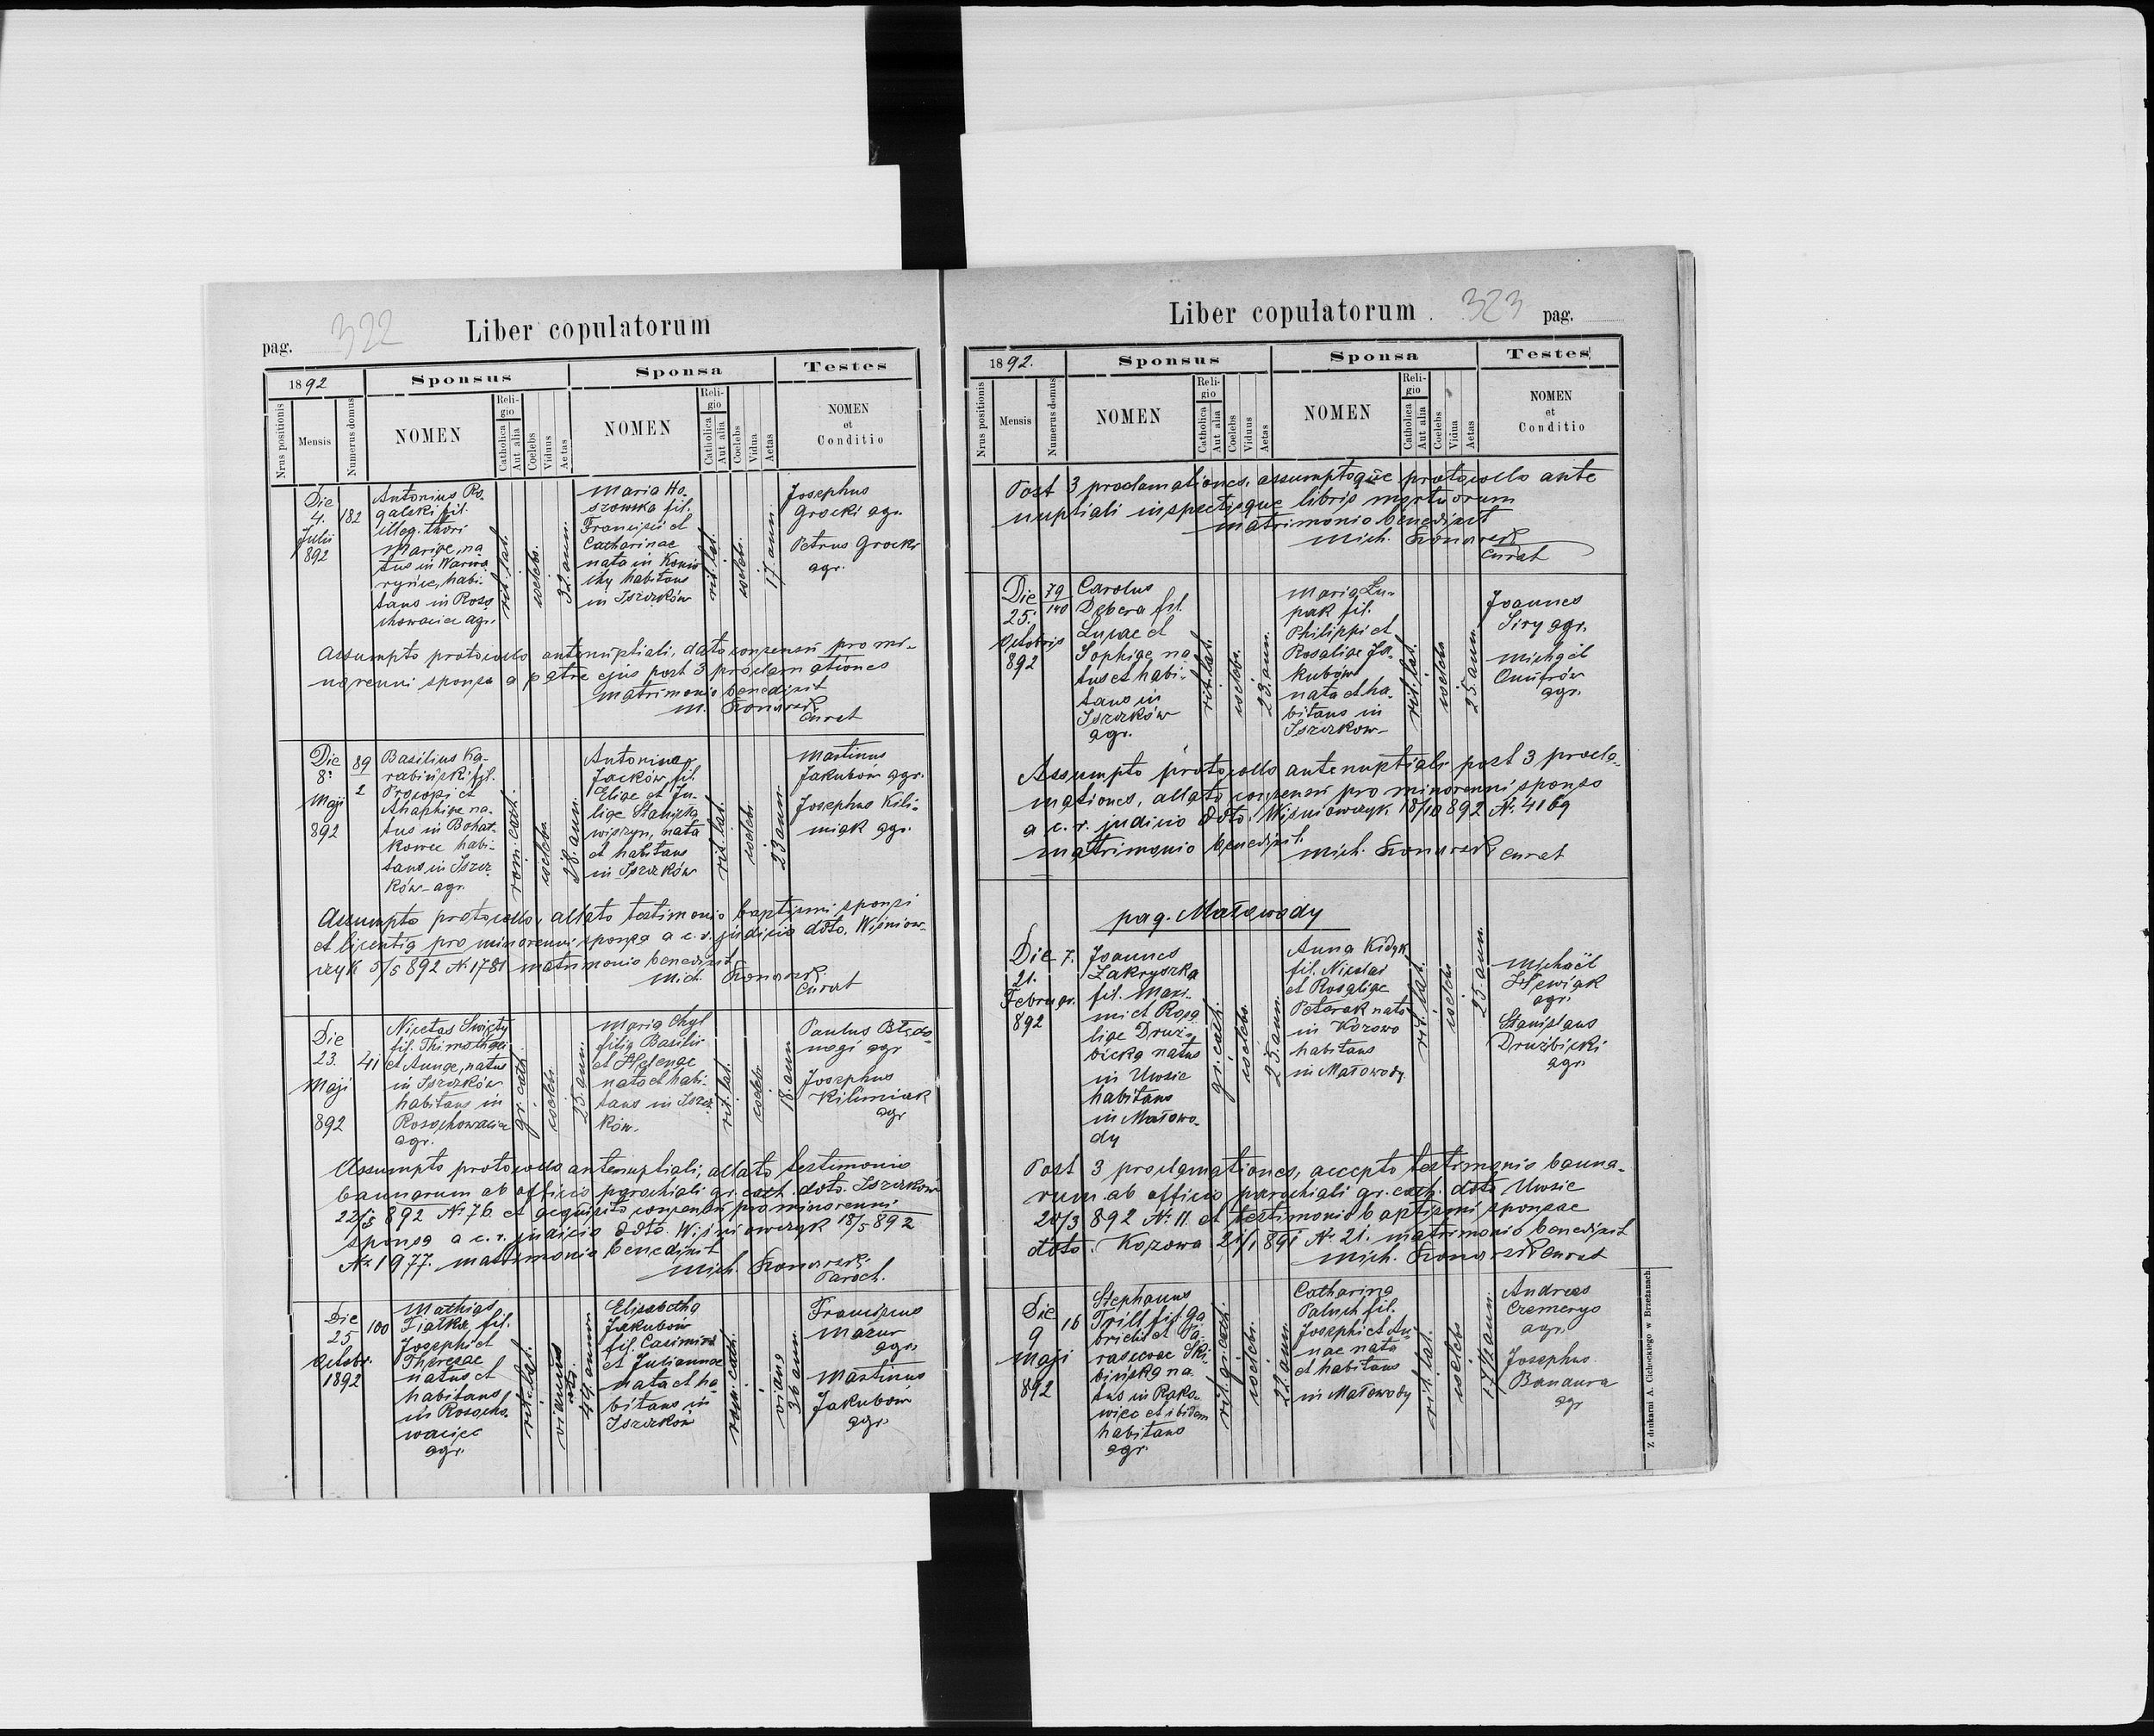 pag. 322 Liber copulatorum
1892 Sponsus Sponsa Testes
Nrus positionis Mensis Numerus domus NOMEN Religio Catholica Aut alia Coelebs Viduus Aetas NOMEN Religio Catholica Aut alia Coelebs Vidua Aetas NOMEN et Conditio
Die
4.
Julii
892
182
Antonius Ro-
galski fil.
illeg. thori
Mariae, na
tus in Warwa
ryńce, habi-
tans in Roso
chowaciec agr.
rit. lat.
coelebs.
32. ann.
Maria Ho-
szowska fil.
Francisci et
Catharinae
nata in Koniu
chy habitans
in Iszczków
rit. lat.
coelebs.
17. ann.
Josephus
Grocki agr.
Petrus Grocki
agr.
Assumpto protocollo antenuptiali, dato consensu pro mi-
norenni sponsa a patre ejus post 3 proclamationes
matrimonio benedixit
M.
Curat
Die
8.
Maji
892
89
2
Basilius Ka-
rabiński fil.
Procopi et
Ahaphiae na-
tus in Bohat-
kowce habi-
tans in Iszcz
ków - agr.
rom. cath.
coelebs.
28. ann.
Antonina
Jacków, fil.
Eliae et Ju-
liae
nata
et habitans
in Iszczków
rit. lat.
coelebs.
23 ann.
Martinus
Jakubów agr.
Josephus Kili-
miak agr.
Assumpto protocollo, allato testimonio baptismi sponsi
et licentia pro minorenni sponsa a c. r. judicio ddto. Wiśniow-
czyk 5/5 892 N. 1781 matrimonio benedixit
Mich.
Curat
Die
23.
Maji
892
41
Nicetas Swięty
fil. Thimothei
et Annae, natus
in Iszczków
habitans in
Rosochowaciec
agr.
gr. cath.
coelebs.
25. ann.
Maria Chyl
filia Basilii
et Helenae
nata et habi-
tans in Iszcz
ków.
rit. lat.
coelebs.
18. ann.
Paulus
agr
Josephus
Kilimiak
agr
Assumpto protocollo antenuptiali, allato testimonio
bannorum ab officio parochiali gr. cath. ddto. Iszczków
22/5 892 N. 76. et acquisito consensu pro minorenni
sponsa a c. r. judicio ddto. Wiśniowczyk 18/5 892
N. 1977. matrimonio benedixit
Mich.
Paroch.
Die
25
Octobr.
1892
100
Mathias
Fiałka, fil.
Josephi et
Theresae
natus et
habitans
in Rosocho-
waciec
agr.
rit. lat.
viduus
49. annor.
Elisabetha
Jakubów
fil. Casimiri
et Juliannae
nata et ha
bitans in
Iszczków
rom. cath.
vidua
36 ann.
Franciscus
Mazur
agr.
Martinus
Jakubów
agr.
Liber copulatorum 323 pag.
1892. Sponsus Sponsa Testes
Nrus positionis Mensis Numerus domus NOMEN Religio Catholica Aut alia Coelebs Viduus Aetas NOMEN Religio Catholica Aut alia Coelebs Vidua Aetas NOMEN et Conditio
Post 3 proclamationes, assumptoque protocollo ante
nuptiali inspectisque libris mortuorum
matrimonio benedixit
Mich.
Curat
Die
25.
Octobris
892
79
140
Carolus
Dębera fil.
Lucae et
Sophiae na
tus et habi-
tans in
Iszczków
agr.
rit. lat.
coelebs.
23. ann.
Maria Łu-
pak fil.
Philippi et
Rosaliae Ja-
kubów
nata et ha-
bitans in
Iszczkow-
rit. lat.
coelebs
25. ann.
Joannes
Siry agr.
Michaël
Onufrów
agr.
Assumpto protocollo antenuptiali post 3 procla-
mationes, allato consensu pro minorenni sponso
a c. r. judicio ddto. Wiśniowczyk 18/10 892 N. 4169
matrimonio benedixit
Mich. Curat
pag. Małowody
Die
21.
Februar.
892
7.
Joannes
Zakryszka
fil. Maxi-
mi et Rosa
liae Druż-
bicka natus
in Uwsie
habitans
in Małowo-
dy
gr. cath.
coelebs.
25. ann.
Anna Kidyk
fil. Nicolai
et Rosaliae
Petarak nata
in Kozowo
habitans
in Małowody
rit. lat.
coelebs
25. ann.
Michaël
agr.
Stanislaus
Drużbicki
agr.
Post 3 proclamationes, accepto testimonio banno-
rum ab officio parochiali gr. cath. ddto Uwsie
20/3 892 N. 11. et testimonio baptismi sponsae
ddto. Kozowa 21/1 891 N. 21. matrimonio benedixit
Mich. Curat
Die
9
Maji
892
16
Stephanus
Trill fil Ga
brielis et Pa-
rasevae Ski-
bińska na-
tus in Rako-
wiec et ibidem
habitans
agr.
rit. gr. cath.
coelebs.
21. ann.
Catharina
Paluch fil.
Josephi et An-
nae nata
et habitans
in Małowody
rit. lat.
coelebs
17 1/2 ann.
Andreas
Czemerys
agr.
Josephus
Bandura
agr
Z drukarni A. Cichockiego w Brzeżanach.